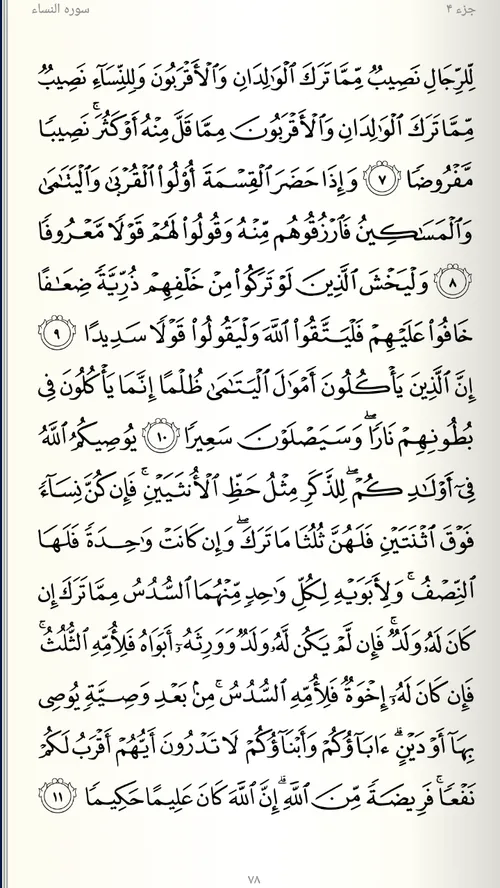 سوره النساء جزء ۴
لِّلرِّجَالِ نَصِيبٌ مِّمَّا تَرَكَ الْوَٰلِدَانِ وَالْأَقْرَبُونَ وَلِلنِّسَاءِ نَصِيبٌ
مِّمَّا تَرَكَ الْوَٰلِدَانِ وَالْأَقْرَبُونَ مِمَّا قَلَّ مِنْهُ أَوْ كَثُرَ ۚ نَصِيبًا
مَّفْرُوضًا ٧ وَإِذَا حَضَرَ الْقِسْمَةَ أُوْلُوا الْقُرْبَىٰ وَالْيَتَٰمَىٰ
وَالْمَسَٰكِينُ فَارْزُقُوهُم مِّنْهُ وَقُولُوا لَهُمْ قَوْلًا مَّعْرُوفًا
٨ وَلْيَخْشَ الَّذِينَ لَوْ تَرَكُوا مِنْ خَلْفِهِمْ ذُرِّيَّةً ضِعَٰفًا
خَافُوا عَلَيْهِمْ فَلْيَتَّقُوا اللَّهَ وَلْيَقُولُوا قَوْلًا سَدِيدًا ٩
إِنَّ الَّذِينَ يَأْكُلُونَ أَمْوَٰلَ الْيَتَٰمَىٰ ظُلْمًا إِنَّمَا يَأْكُلُونَ فِى
بُطُونِهِمْ نَارًا ۖ وَسَيَصْلَوْنَ سَعِيرًا ١٠ يُوصِيكُمُ اللَّهُ
فِىٓ أَوْلَٰدِكُمْ ۖ لِلذَّكَرِ مِثْلُ حَظِّ الْأُنثَيَيْنِ ۚ فَإِن كُنَّ نِسَآءً
فَوْقَ اثْنَتَيْنِ فَلَهُنَّ ثُلُثَا مَا تَرَكَ ۖ وَإِن كَانَتْ وَٰحِدَةً فَلَهَا
النِّصْفُ ۚ وَلِأَبَوَيْهِ لِكُلِّ وَٰحِدٍ مِّنْهُمَا السُّدُسُ مِمَّا تَرَكَ إِن
كَانَ لَهُۥ وَلَدٌ ۚ فَإِن لَّمْ يَكُن لَّهُۥ وَلَدٌ وَوَرِثَهُۥٓ أَبَوَاهُ فَلِأُمِّهِ الثُّلُثُ ۚ
فَإِن كَانَ لَهُۥٓ إِخْوَةٌ فَلِأُمِّهِ السُّدُسُ ۚ مِنۢ بَعْدِ وَصِيَّةٍ يُوصِى
بِهَآ أَوْ دَيْنٍ ۗ ءَابَآؤُكُمْ وَأَبْنَآؤُكُمْ لَا تَدْرُونَ أَيُّهُمْ أَقْرَبُ لَكُمْ
نَفْعًا ۚ فَرِيضَةً مِّنَ اللَّهِ ۗ إِنَّ اللَّهَ كَانَ عَلِيمًا حَكِيمًا ١١
٧٨